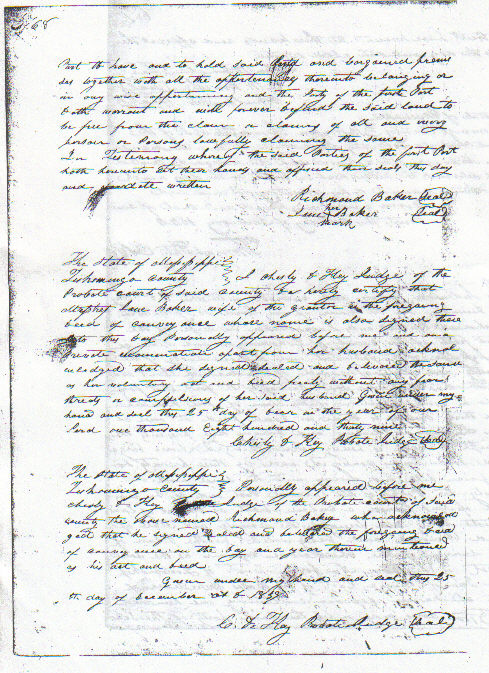 568
Part to have and to hold said land and bargained premi
ses together with all the appertenances thereunto belonging or
in any wise appertaining and the Party of the first Part
doth warrant and will forever defend the said land to
be free from the claim or claims of all and every
person or Persons lawfully claiming the same
In Testimony whereof the said Parties of the first Part
hath hereunto set their hands and affixed their seals this day
and written
Richmond Baker (Seal)
her
Jane Baker (Seal)
mark
The State of Mississippi
Tishomingo County I Chesly D Hey Judge of the
Probate court of said County do hereby certify that
Jane Baker wife of the grantor in the foregoing
deed of conveyance whose name is also signed there
to this day Personally appeared before me and on a
private examination apart from her husband acknol
wledged that she signed sealed and delivered the same
as her voluntary act and deed freely without any fears
threts or of her said husband Given under my
hand and seal this 25 day of in the year of our
Lord one thousand Eight hundred and thirty nine
Chesly D Hey Probate Judge (Seal)
The State of Mississippi
Tishomingo County Personally appeared before me
Chesly D Hey Judge of the Probate court of said
county the above named Richmond Baker who acknowled
ged that he signed sealed and delivered the foregoing deed
of conveyance on the day and year therein mentioned
as his act and deed
Given under my hand and seal this 25
th day of December 1839
C. D. Hey Probate Judge (Seal)